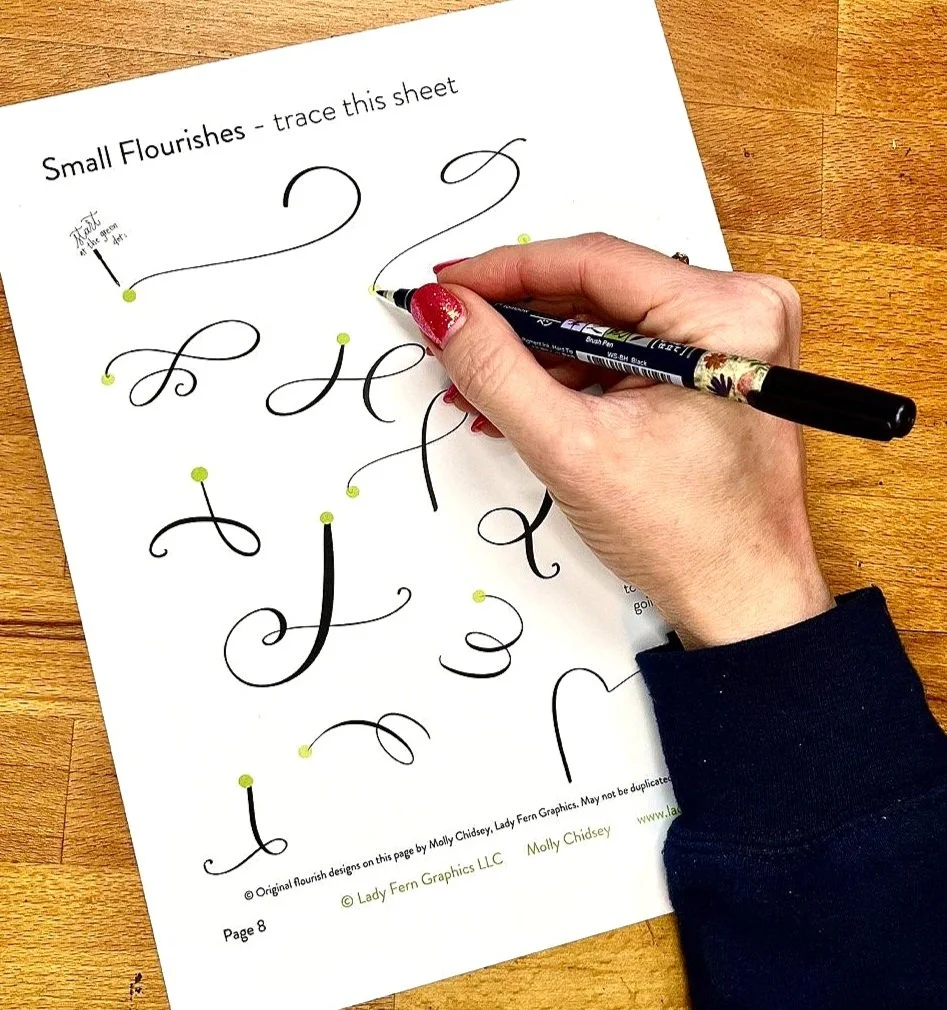 Small Flourishes - trace this sheet
start
at the green
dot.
Brush Pen
WS-BH Black
to
goi
© Original flourish designs on this page by Molly Chidsey, Lady Fern Graphics. May not be duplicated
© Lady Fern Graphics LLC Molly Chidsey www.la
Page 8